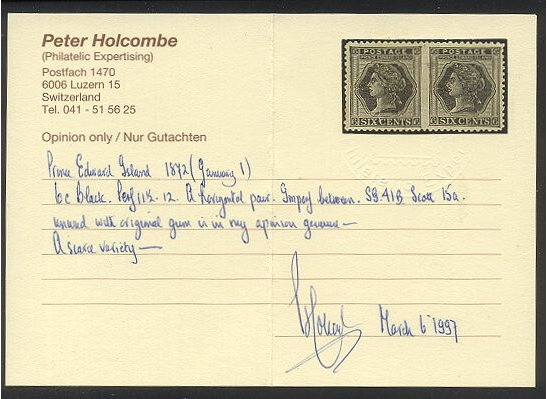 Peter Holcombe
(Philatelic Expertising)
Postfach 1470
6006 Luzern 15
Switzerland
Tel. 041 - 51 56 25
Opinion only / Nur Gutachten
POSTAGE POSTAGE
PRINCE EDWARD ISLAND
SIX CENTS SIX CENTS
Prince Edward Island 1872 (January 1)
6c black. Perf 11½-12. A horizontal pair. Imperf between. SG.41B Scott 15a.
unused with original gum is in my opinion genuine —
A scarce variety —
March 6 1997